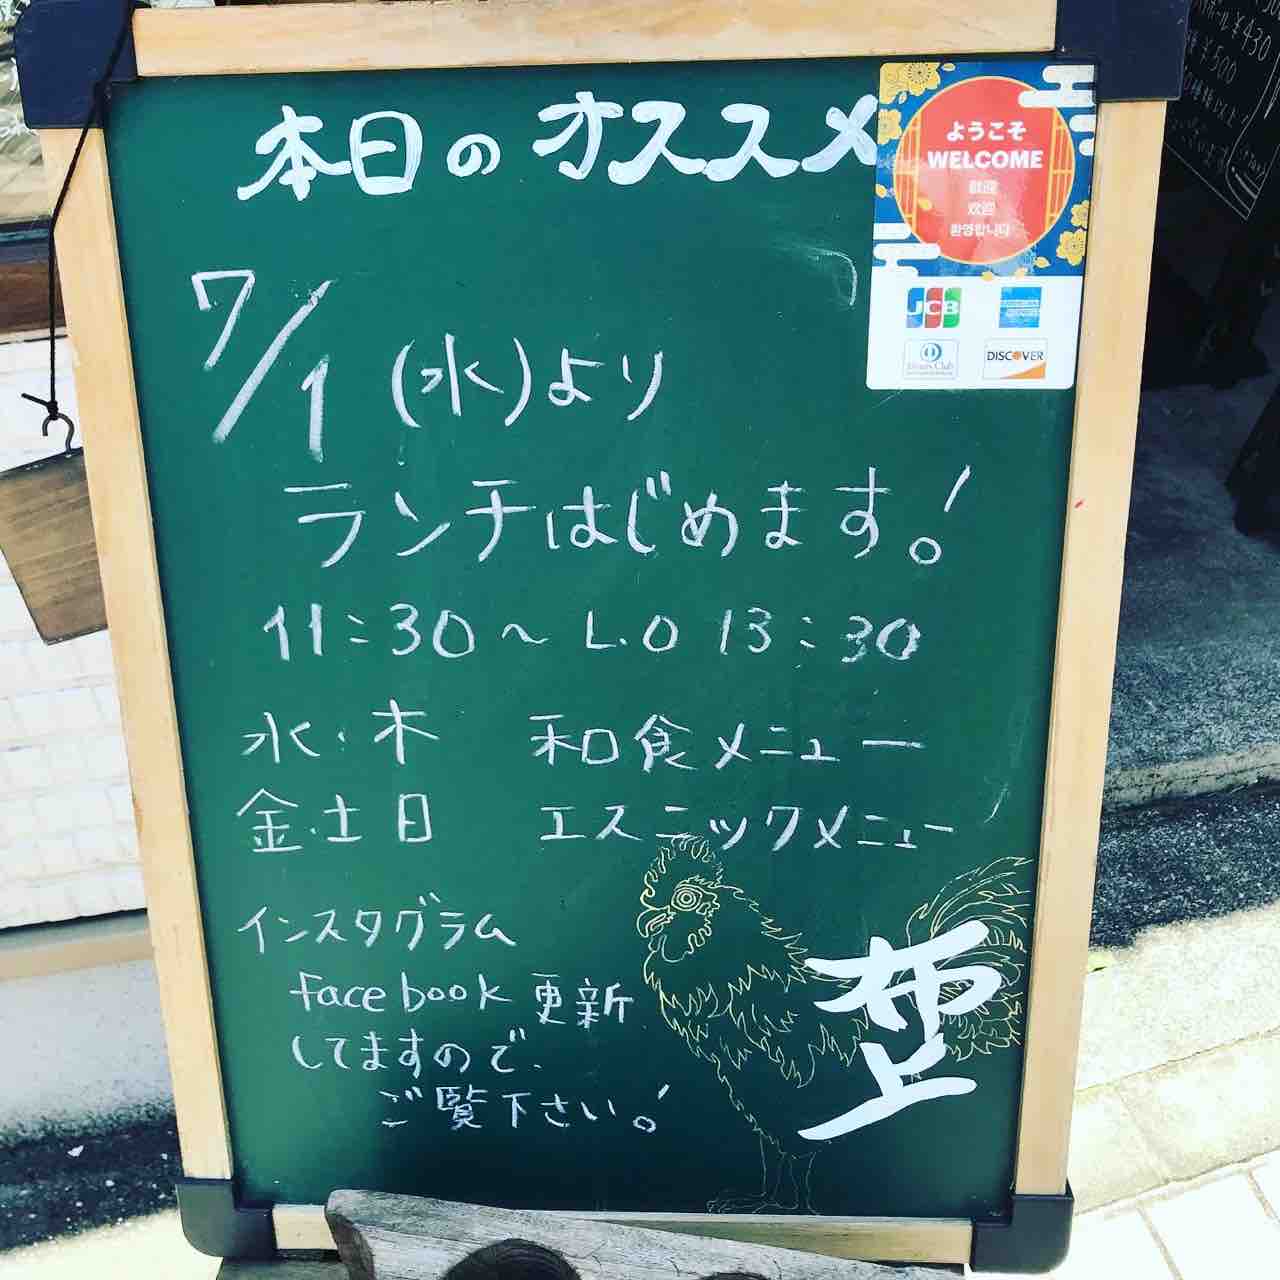 本日のオススメ
ようこそ
WELCOME
歡迎
欢迎
환영합니다
JCB
AMERICAN EXPRESS
Diners Club
DISCOVER
7/1(水)より
ランチはじめます!
11:30~L.O 13:30
水・木 和食メニュー
金.土日 エスニックメニュー
インスタグラム
facebook更新
してますので、
ご覧下さい!
布上
¥430
¥500